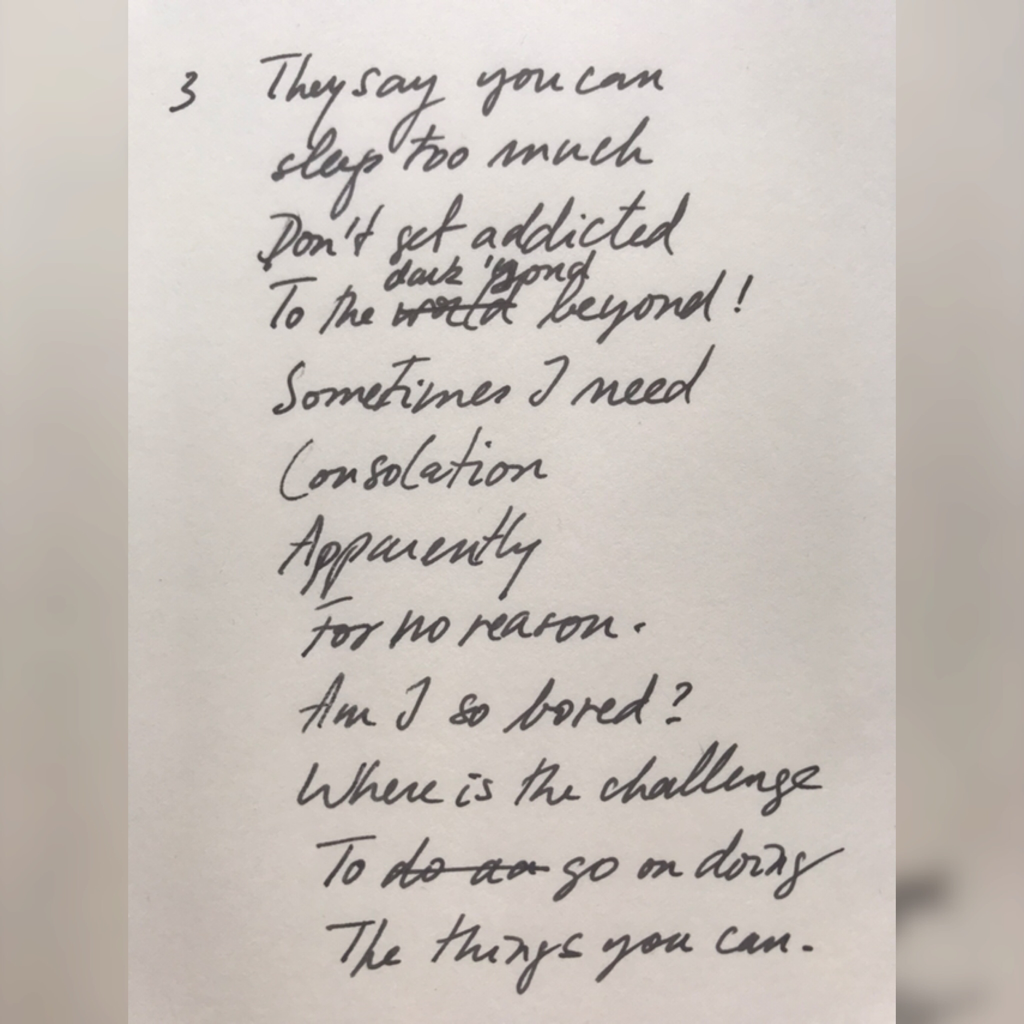 3 They say you can
sleep too much
Don't get addicted
dark 'yond
To the world beyond!
Sometimes I need
Consolation
Apparently
For no reason.
Am I so bored?
Where is the challenge
To do go on doing
The things you can.